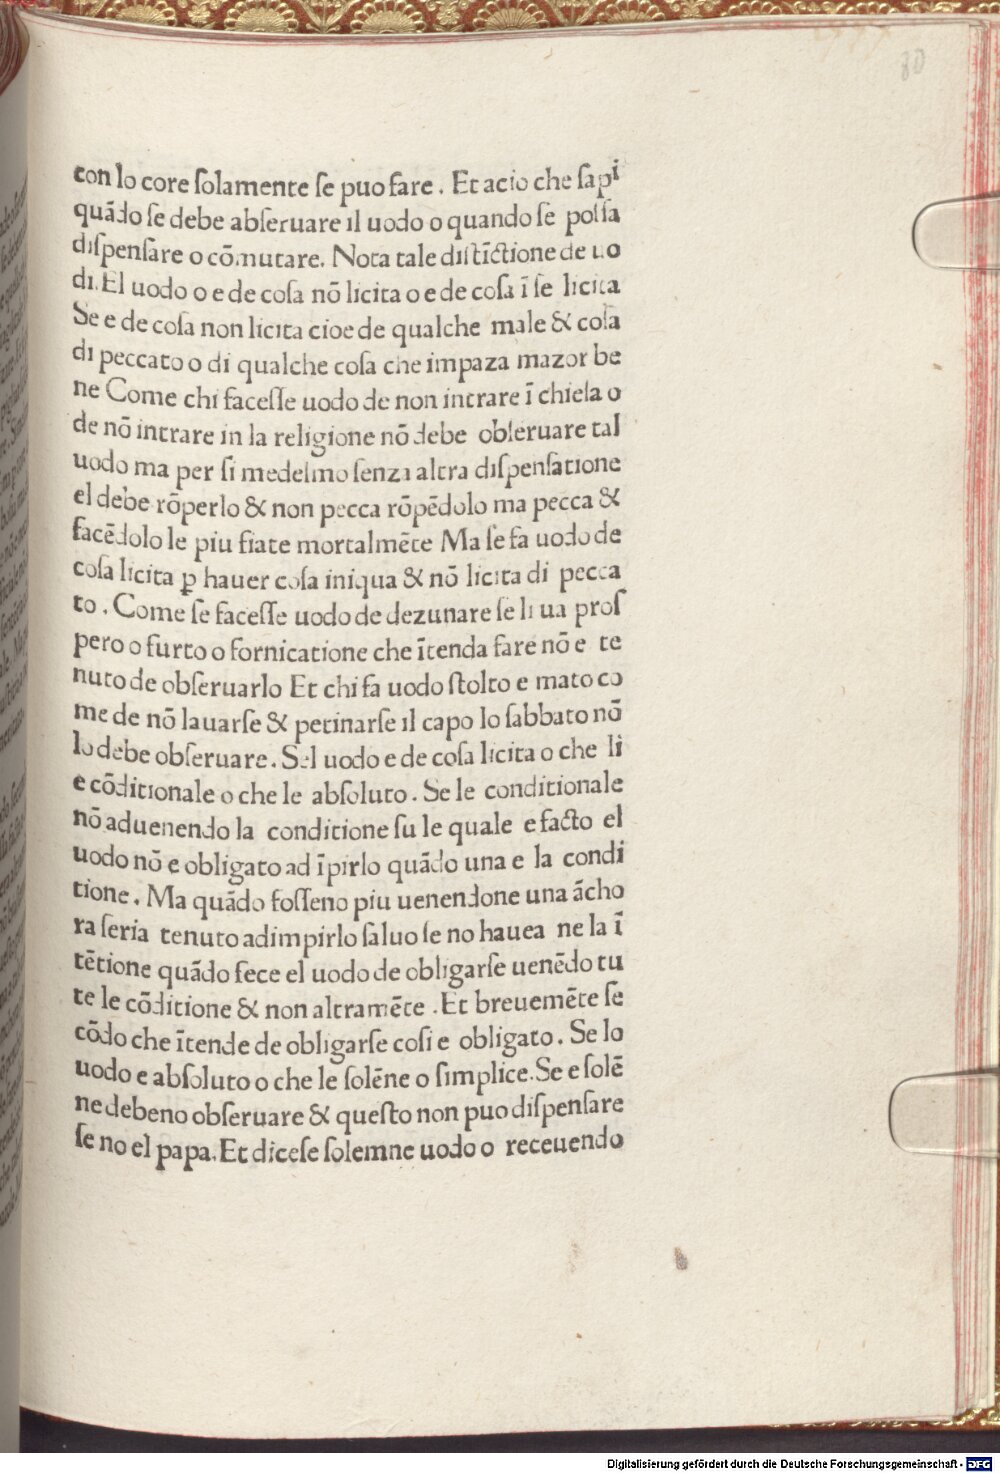 80
con lo core ſolamente ſe puo fare . Et acio che ſapi
quãdo ſe debe abſeruare il uodo o quando ſe poſſa
diſpenſare o cõmutare. Nota tale diſtĩctione de uo
di. El uodo o e de coſa nõ licita o e de coſa ĩ ſe licita
Se e de coſa non licita cioe de qualche male & coſa
di peccato o di qualche coſa che impaza mazor be
ne Come chi faceſſe uodo de non intrare ĩ chieſa o
de nõ intrare in la religione nõ debe obſeruare tal
uodo ma per ſi medeſmo ſenza altra diſpenſatione
el debe rõperlo & non pecca rõpẽdolo ma pecca &
facẽdolo le piu fiate mortalmẽte Ma ſe fa uodo de
coſa licita ꝑ hauer coſa iniqua & nõ licita di pecca
to . Come ſe faceſſe uodo de dezunare ſe li ua proſ
pero o furto o fornicatione che ĩtenda fare nõ e te
nuto de obſeruarlo Et chi fa uodo ſtolto e mato co
me de nõ lauarſe & petinarſe il capo lo ſabbato nõ
lo debe obſeruare . Sel uodo e de coſa licita o che li
e cõditionale o che le abſoluto . Se le conditionale
nõ aduenendo la conditione ſu le quale e facto el
uodo nõ e obligato ad ĩpirlo quãdo una e la condi
tione . Ma quãdo foſſeno piu uenendone una ãcho
ra ſeria tenuto adimpirlo ſaluo ſe no hauea ne la ĩ
tẽtione quãdo fece el uodo de obligarſe uenẽdo tu
te le cõditione & non altramẽte . Et breuemẽte ſe
cõdo che ĩtende de obligarſe coſi e obligato . Se lo
uodo e abſoluto o che le ſolẽne o ſimplice. Se e ſolẽ
ne debeno obſeruare & queſto non puo diſpenſare
ſe no el papa. Et diceſe ſolemne uodo o receuendo
Digitalisierung gefördert durch die Deutsche Forschungsgemeinschaft - DFG